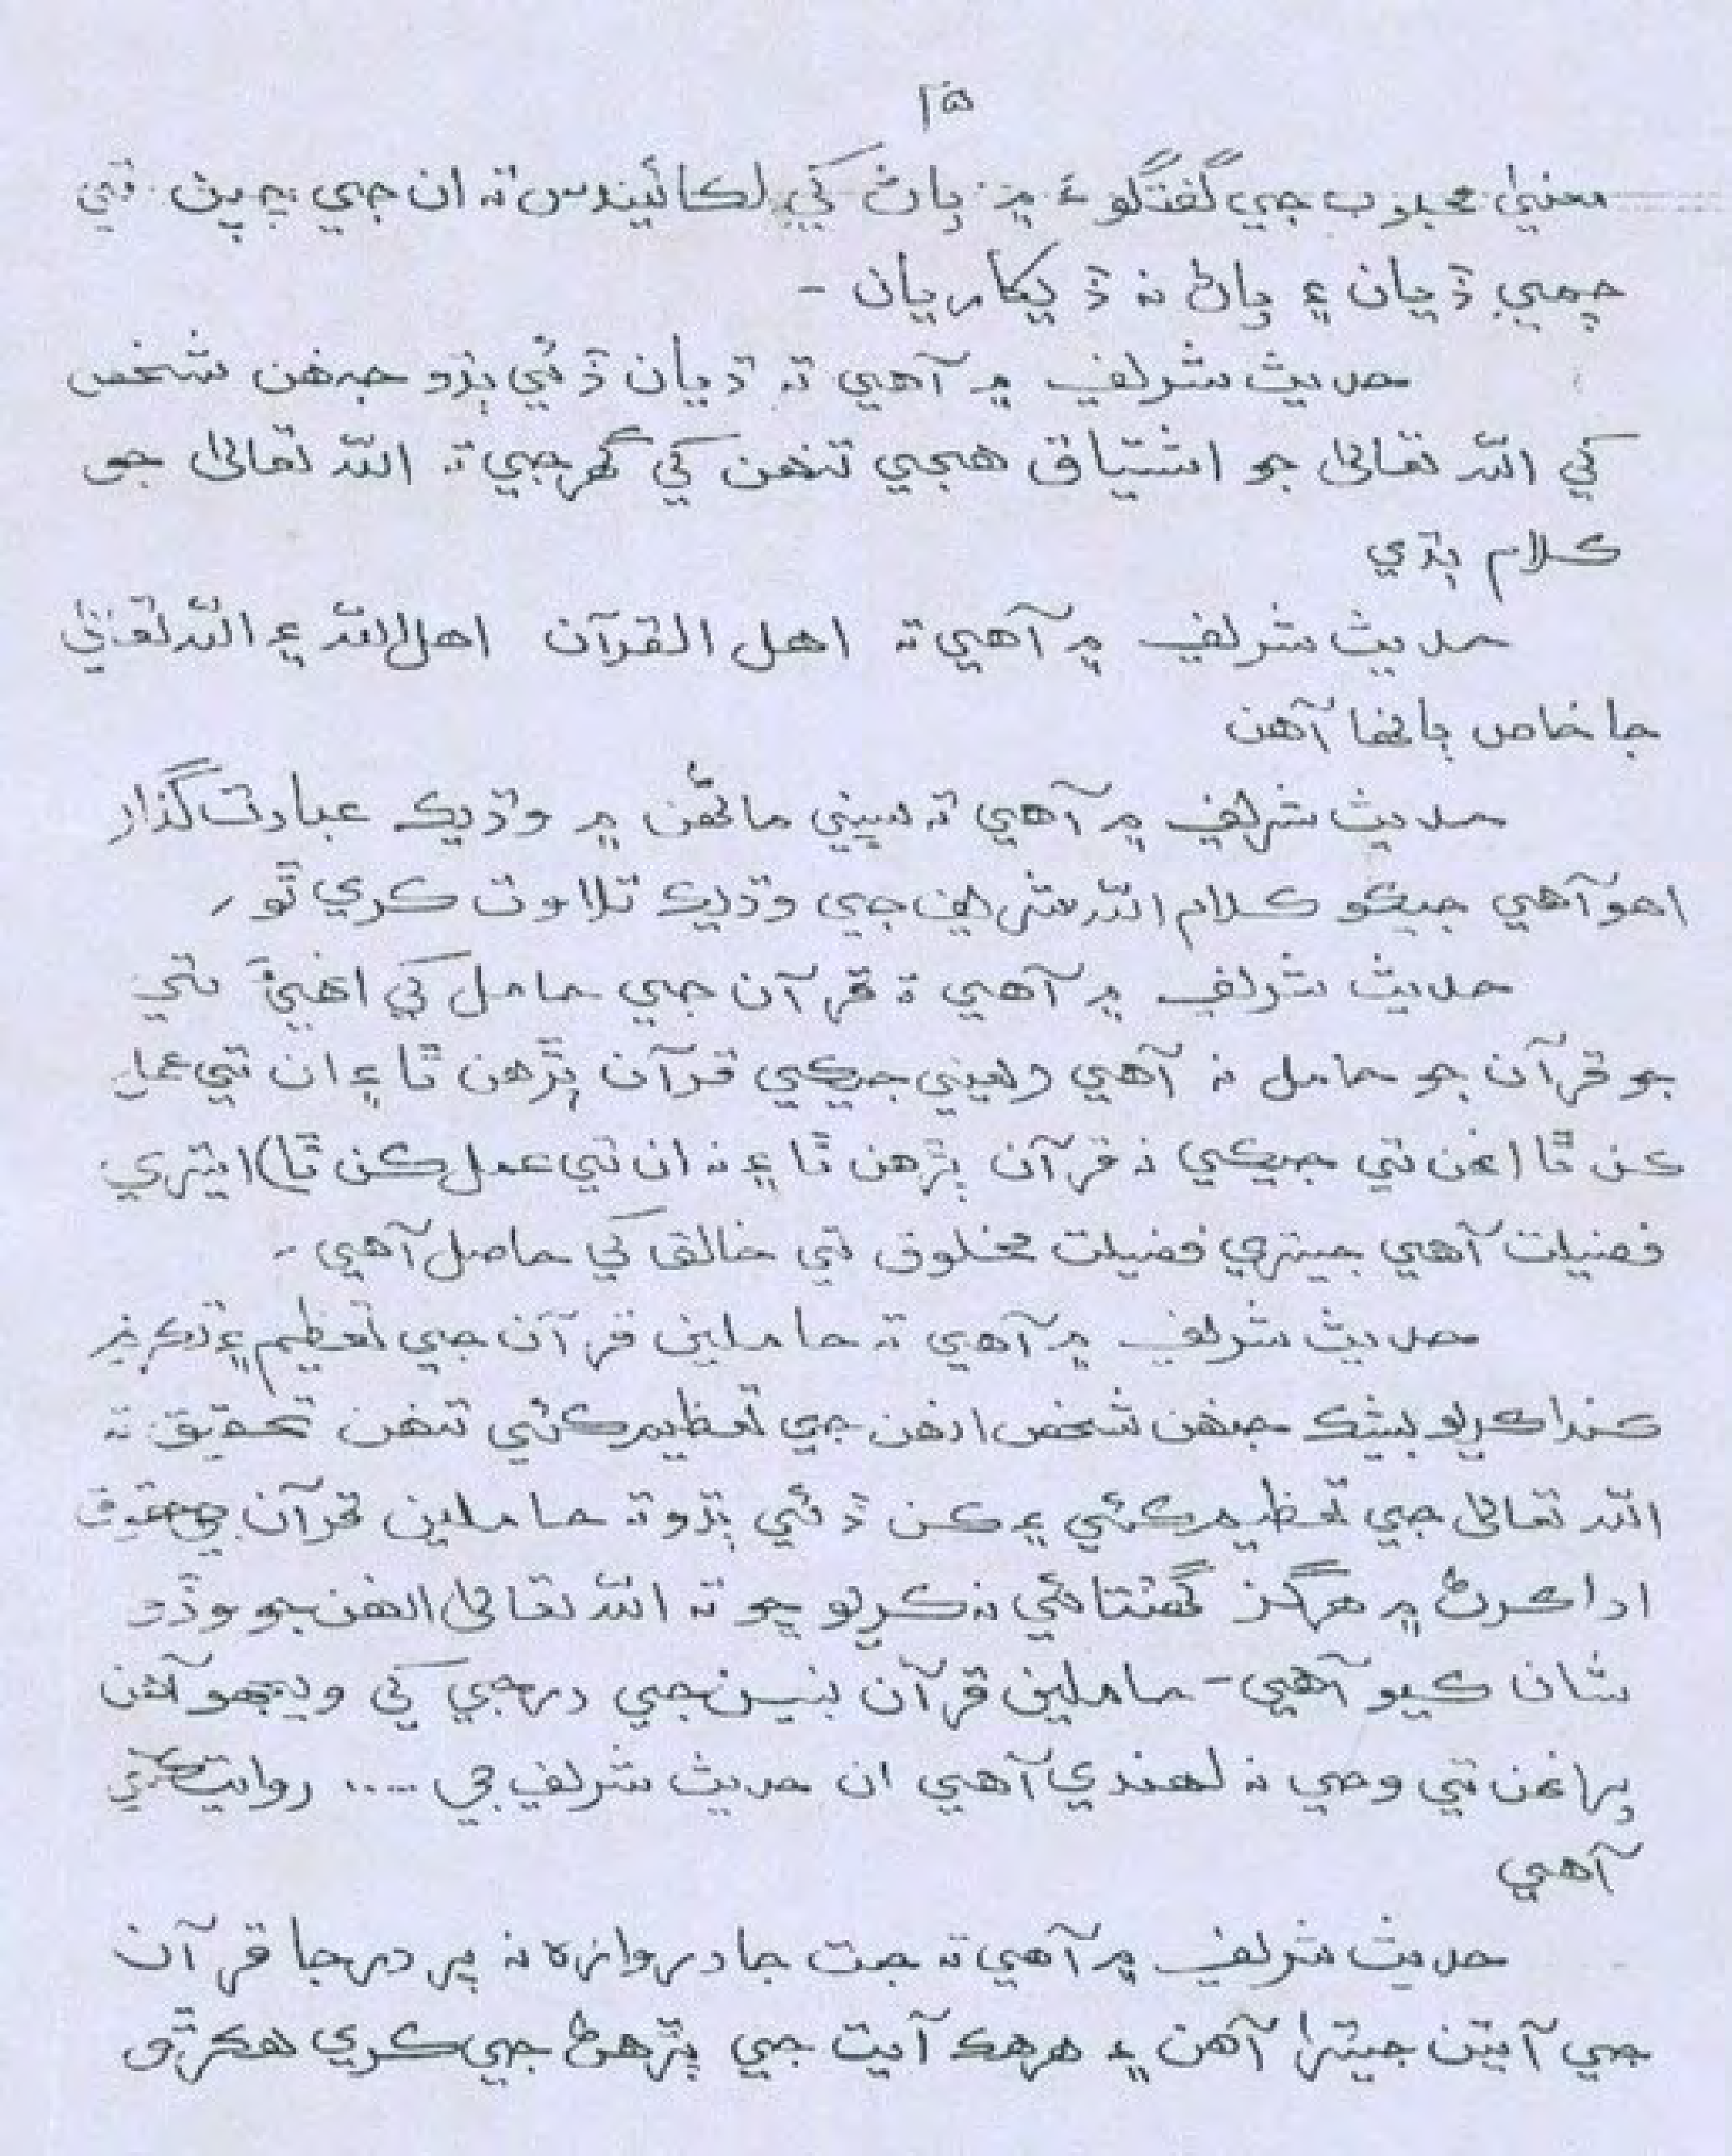 ۱۵
معنيٰ محبوب جي گفتگوءَ ۾ پاڻ کي لڪائيندس تہ ان جي چپن تي
چمي ڏيان ۽ پاڻ نہ ڏيکاريان -
حديث شريف ۾ آهي تہ ڌيان ڏئي ٻڌو جنهن شخص
کي الله تعاليٰ جو اشتياق هجي تنهن کي گهرجي تہ الله تعاليٰ جو
ڪلام ٻڌي
حديث شريف ۾ آهي تہ اهل القرآن اهل الله ۽ الله تعاليٰ
جا خاص ٻانها آهن
حديث شريف ۾ آهي تہ سڀني ماڻهن ۾ وڌيڪ عبادت گذار
اهو آهي جيڪو ڪلام الله شريف جي وڌيڪ تلاوت ڪري ٿو ،
حديث شريف ۾ آهي تہ قرآن جي حامل کي انهيءَ تي
جو قرآن جو حامل نہ آهي (يعني جيڪي قرآن پڙهن ٿا ۽ ان تي عمل
ڪن ٿا انهن تي جيڪي نہ قرآن پڙهن ٿا ۽ نہ ان تي عمل ڪن ٿا) ايتري
فضيلت آهي جيتري فضيلت مخلوق تي خالق کي حاصل آهي -
حديث شريف ۾ آهي تہ حاملين قرآن جي تعظيم ۽ تڪريم
ڪندا ڪريو بيشڪ جنهن شخص انهن جي تعظيم ڪئي تنهن تحقيق تہ
الله تعاليٰ جي تعظيم ڪئي ۽ ڪن ڏئي ٻڌو تہ حاملين قرآن جي حقوق
ادا ڪرڻ ۾ هرگز گهٽتائي نہ ڪريو ڇو تہ الله تعاليٰ انهن جو وڏو
شان ڪيو آهي - حاملين قرآن نبين جي درجي کي ويجهو آهن
پر انهن تي وحي نہ لهندي آهي ان حديث شريف جي .... روايت ڪئي
آهي
حديث شريف ۾ آهي تہ جنت جا دروازه نہ پر درجا قرآن
جي آيتن جيترا آهن ۽ هر هڪ آيت جي پڙهڻ جي ڪري هڪڙو